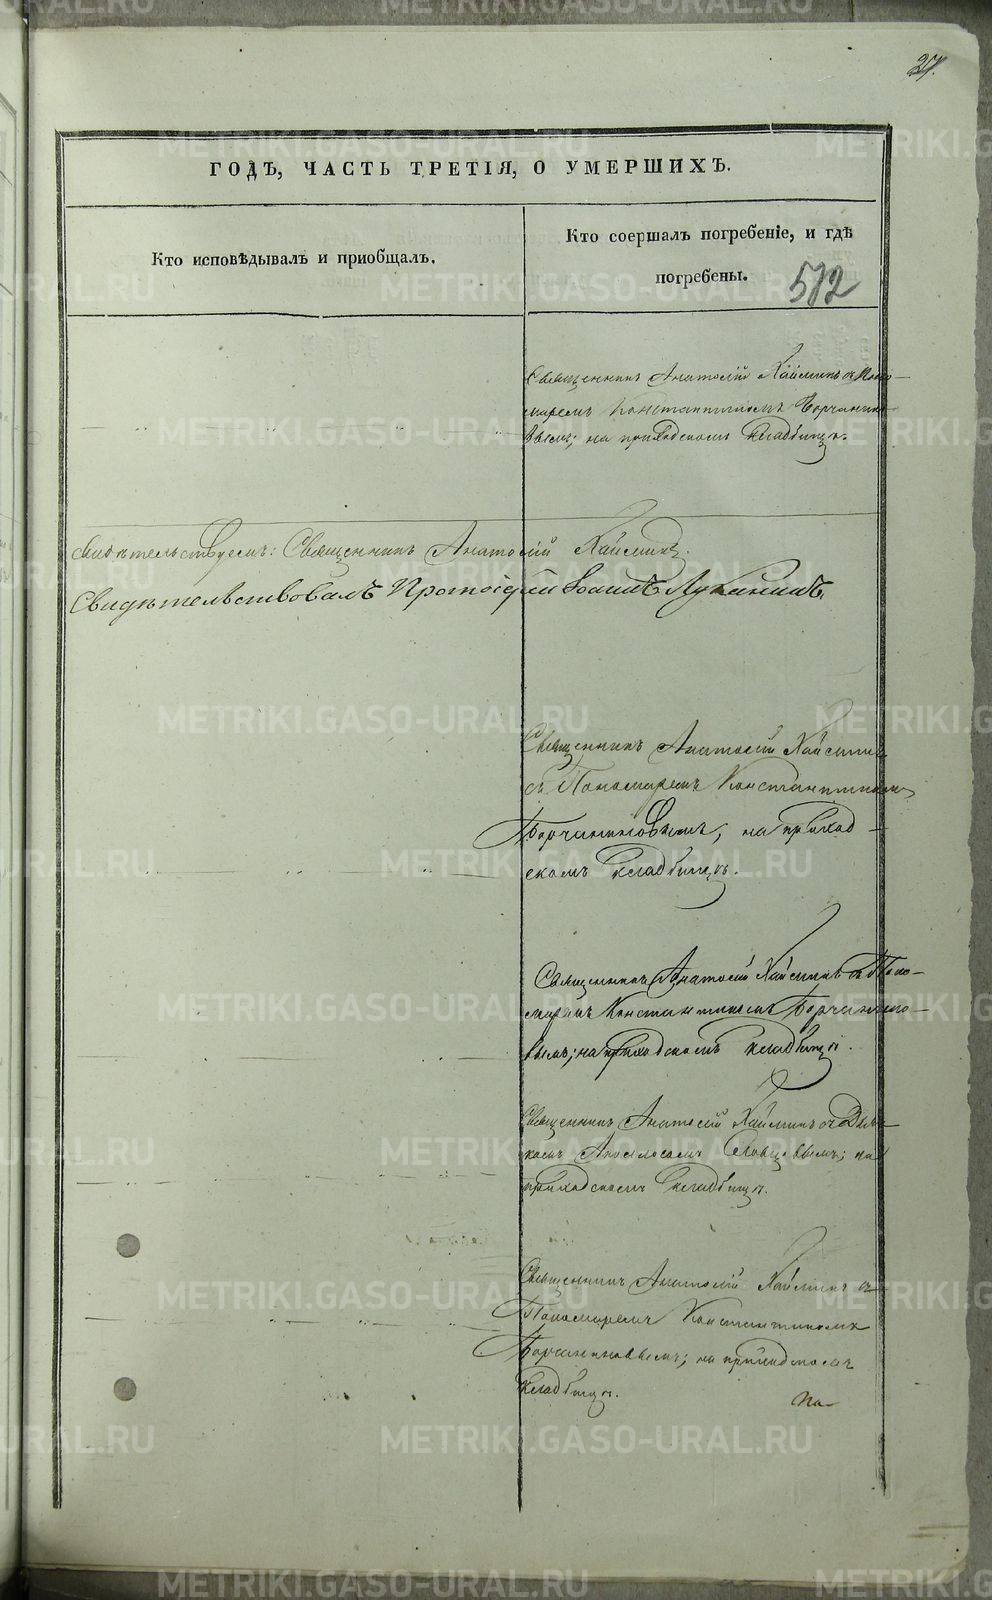 27.
ГОДЪ, ЧАСТЬ ТРЕТІЯ, О УМЕРШИХЪ.
Кто исповѣдывалъ и пріобщалъ.
Кто соершалъ погребеніе, и гдѣ
погребены.
572
Священникъ Анатолій Хаймин съ Поно-
маремъ Константиномъ Борчанино-
вымъ; на приходскомъ кладбищѣ.
свидѣтельствуемъ: Священникъ Анатолій Хайминъ.
Свидѣтельствовалъ Протоіерей Іоаннъ Луканинъ.
Священникъ Анатолій Хаймин
съ Пономаремъ Константиномъ
Борчаниновымъ, на приход-
скомъ кладбищѣ.
Священникъ Анатолій Хайминъ съ Поно-
маремъ Константиномъ Борчанино-
вымъ; на приходскомъ кладбищѣ.
Священникъ Анатолій Хайминъ съ Дьяч-
комъ; на
приходскомъ кладбищѣ.
Священникъ Анатолій Хайминъ съ
Пономаремъ Константиномъ
Борчаниновымъ; на приходскомъ
кладбищѣ.
На
METRIKI.GASO-URAL.RU